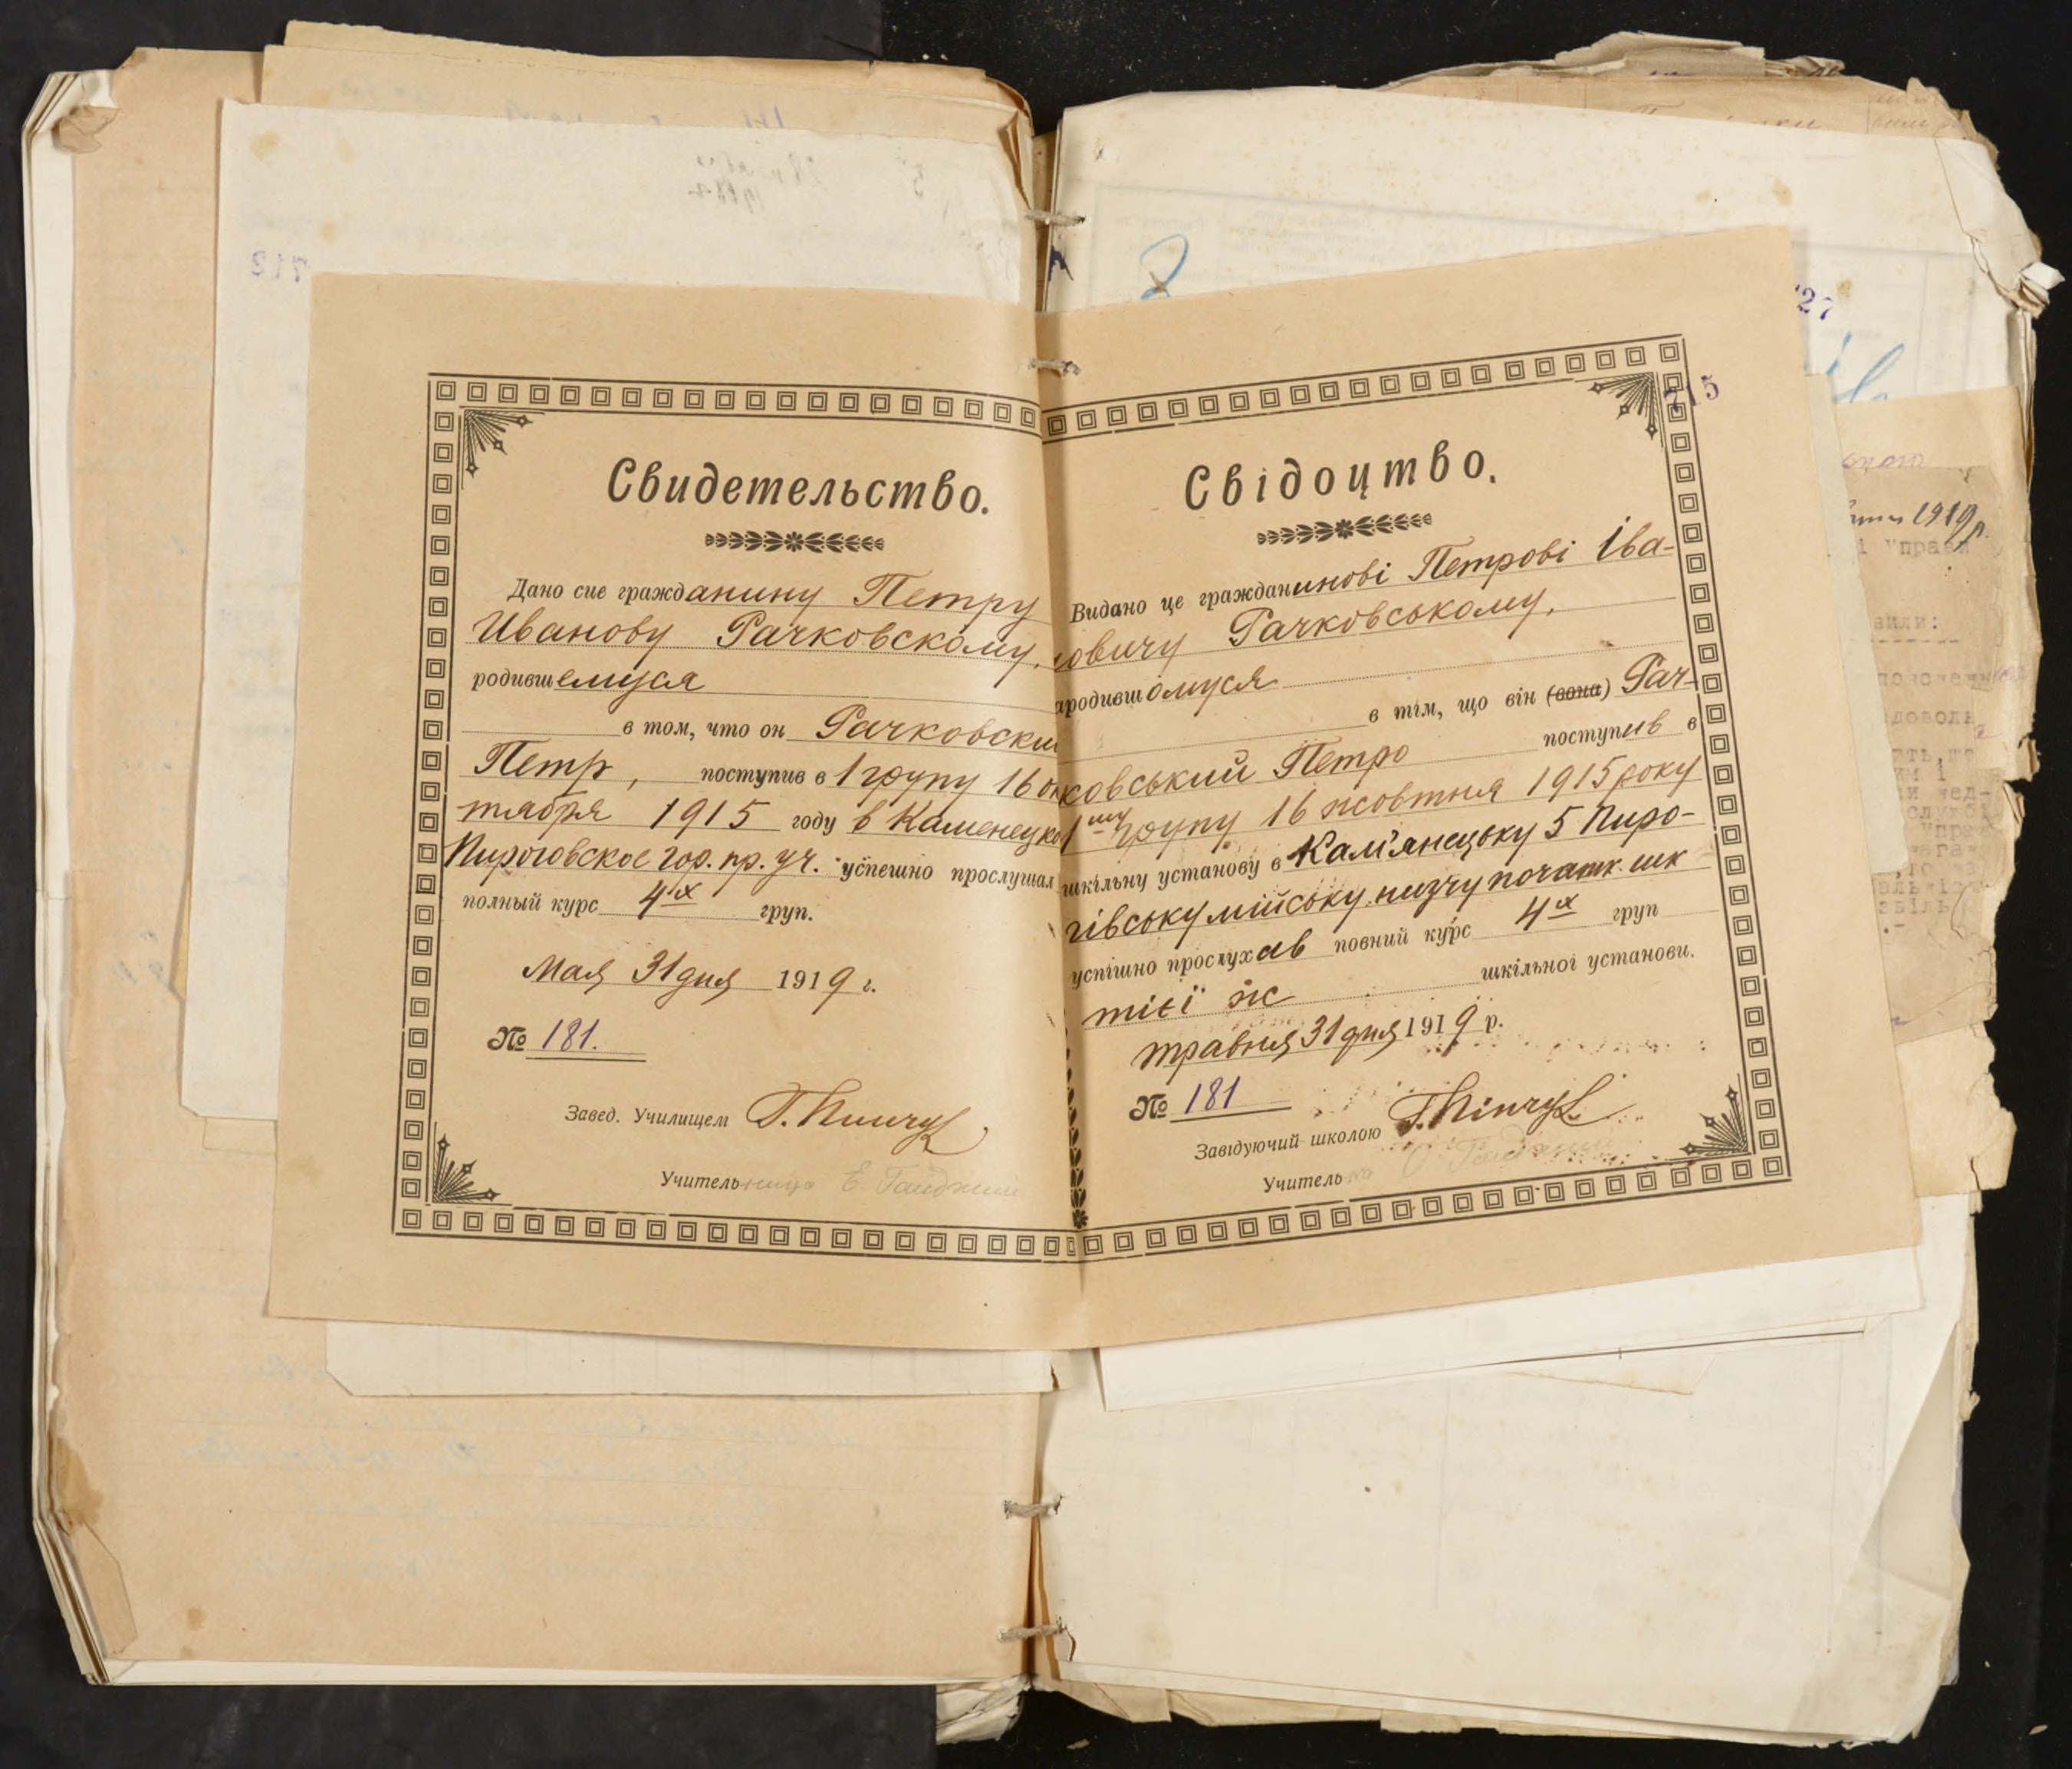 Свидетельство.
Дано сие гражданину Петру
Иванову Рачковскому,
родившемуся
в том, что он Рачковски
Петр, поступив в 1 групу 16 ок
тября 1915 году в Каменецко
Пироговское гор. пр. уч. успешно прослушал
полный курс 4х груп.
Мая 31 дня 1919 г.
№ 181.
Завед. Училищем
Учительница Е.
Свідоцтво.
Видано це гражданинові Петрові Іва-
новичу Рачковському,
народившомуся
в тім, що він (вона) Рач-
ковський Петро поступив в
1шу групу 16 жовтня 1915 року
шкільну установу в Кам'янецьку 5 Пиро-
гівську мійську низчу початк. шк
успішно прослухав повний курс 4х груп
тієї ж шкільної установи.
травня 31 дня 1919 р.
№ 181
Завідуючий школою
Учителька
715
27
712
1919 р.